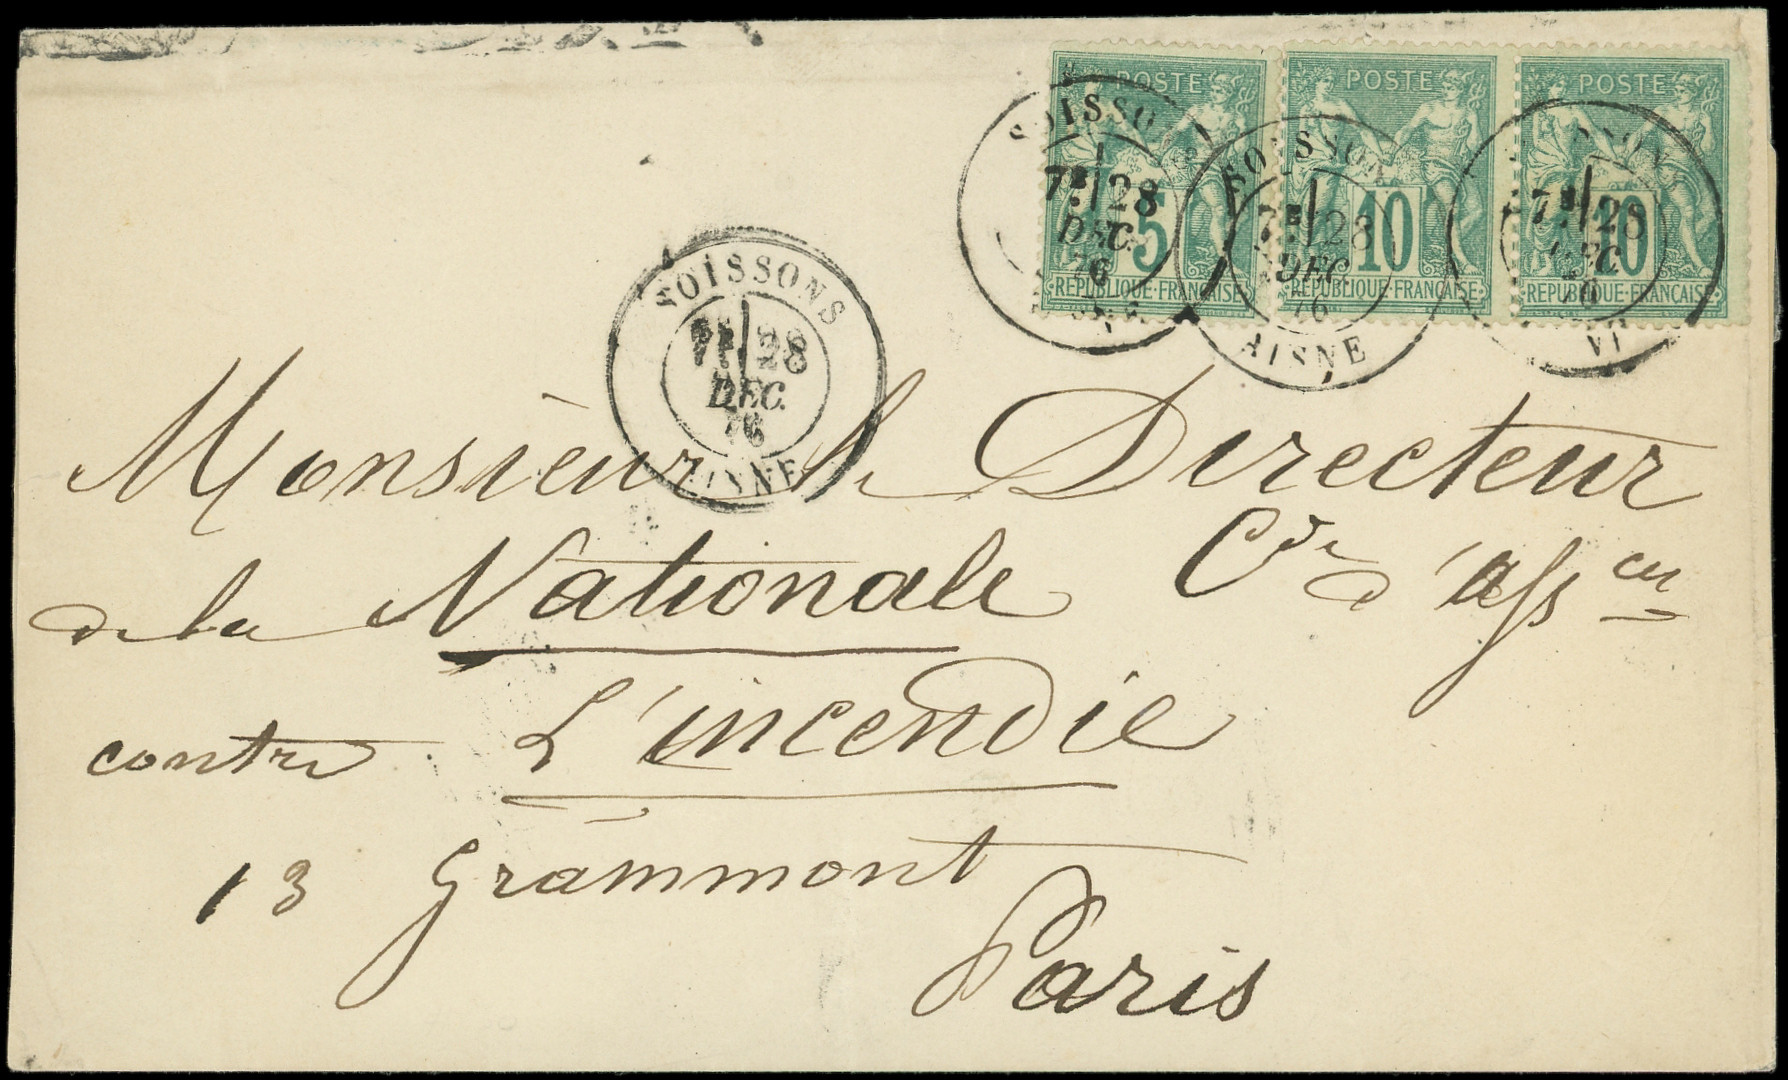 POSTE POSTE POSTE
5 10 10
REPUBLIQUE·FRANCAISE REPUBLIQUE·FRANCAISE REPUBLIQUE·FRANCAISE
SOISSONS
7E 28
DEC.
76
SOISSONS
7E 28
DEC
76
AISNE
7E 28
DEC.
76
SOISSONS
7E 28
DEC.
76
AISNE
Monsieur le Directeur
de la Nationale Cie d'Assces
contre L'incendie
13 Grammont
Paris